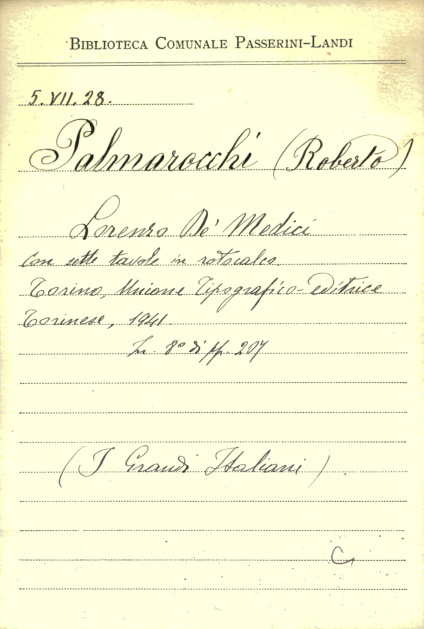 BIBLIOTECA COMUNALE PASSERINI-LANDI
5.VII.28.
Palmarocchi (Roberto)
Lorenzo De' Medici
con sette tavole in rotocalco.
Torino, Unione Tipografico-editrice
Torinese, 1941.
In 8° di pp. 207
(I Grandi Italiani)
G